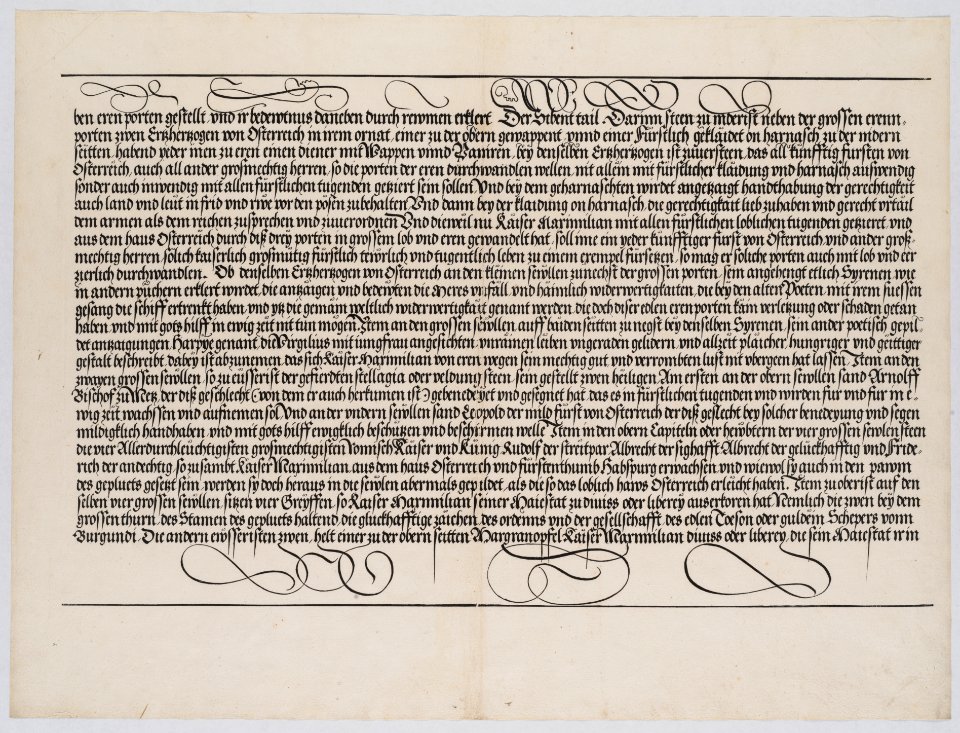 ben eren porten gestellt vnd ir bedewtnus daneben durch reymen erklert Der Sibent tail. Darinn steen zu inderist neben der grossen erenn-
porten zwen Ertzhertzogen von Osterreich in irem ornat, einer zu der obern gewappent, vnnd einer Fürstlich geklaidet on harnasch zu der indern
seitten, habend yeder inen zu eren einen diener mit Wappen vnnd Paniren, bey denselben Ertzhertzogen ist züuersteen, das all künfftig fursten von
Osterreich, auch all ander grosmechtig herren, so die porten der eren durchwandlen wellen, mit allein mit fürstlicher klaidung vnd harnasch auswendig
sonder auch inwendig mit allen fürstlichen tugenden getziert sein sollen Vnd bey dem geharnaschten wirdet angetzaigt handthabung der gerechtigkeit
auch land vnd leüt in frid vnd rwe vor den pösen zubehalten Vnd dann bey der klaidung on harnasch, die gerechtigkait lieb zuhaben vnd gerecht vrtail
dem armen als dem reichen zusprechen vnd zuuerordnen Vnd dieweil nu Kaiser Maximilian mit allen fürstlichen loblichen tugenden getzieret, vnd
aus dem haus Osterreich durch diß drey porten in grossem lob vnd eren gewandelt hat, soll ime ein yeder künfftiger fürst von Osterreich, vnd ander groß-
mechtig herren sölich kaiserlich grosmütig fürstlich vnd tugentlich leben zu einem exempel fürsetzen, so mag er soliche porten auch mit lob vnd eer
zierlich durchwandlen. Ob denselben Ertzhertzogen von Osterreich an den kleinen sewllen zunechst der grossen porten, sein angehengt etlich Syrenen, wie
in andern püchern erklert wirdet, die antzaigen, vnd bedewten die Meres vnfall, vnd häimlich widerwertigkaiten, die bey den alten Poeten, mit irem suessen
gesang die schiff ertrenkt haben, vnd ytz die gemain weltlich widerwertigkait genant werden, die doch diser edlen eren porten kain verletzung oder schaden getan
haben, vnd mit gots hilff in ewig zeit nit tun mögen. Item an den grossen sewllen auff baiden seitten zu negst bey denselben Syrenen, sein ander poetisch gepil-
det antzaigungen Harpye genant, die Virgilius mit iungfraw angesichten, vnrainen leiben vngeraden gelidern, vnd allzeit plaicher hungriger vnd geittiger
gestalt beschreibt, dabey ist abzunemen, das sich Kaiser Maximilian von eren wegen sein mechtig gut vnd verrombten lust mit vbergeen hat lassen. Item an den
zwayen grossen sewllen, so zu eüsserist der gefierdten stellagia oder veldung steen, sein gestellt zwen heiligen, Am ersten an der obern sewllen sand Arnolff
Bischof zu Metz, der diß geschlecht (von dem er auch herkumen ist) gebenedeyet vnd gesegnet hat, das es in fürstlichen tugenden vnd wirden für vnd für in e-
wig zeit wachssen vnd aufnemen sol Vnd an der vndern sewllen sand Leopold der mild fürst von Osterreich, der diß geslecht bey solcher benedeyung vnd segen
mildigklich handhaben, vnd mit gots hilff ewigklich beschützen vnd beschirmen welle Item in den obern Capiteln oder hewbtern der vier grossen sewlen steen
die vier Allerdurchleüchtigisten grosmechtigisten Römisch Kaiser vnd Künig Rudolf der streitpar Albrecht der sighafft Albrecht der gelückhafftig vnd Fride-
rich der andechtig so zusambt Kaiser Maximilian, aus dem haus Osterreich vnd fürstenthumb Habspurg erwachsen, vnd wiewol sy auch in den pawm
des gepluets gesetzt sein, werden sy doch heraus in die sewlen abermals gepildet, als die so das loblich haws Osterreich erleücht haben. Item zu oberist auf den
selben vier grossen sewllen, sitzen vier Greyffen, so Kaiser Maximilian seiner Maiestat zu diuiss oder liberey auserkoren hat Nemlich die zwen bey dem
grossen thurn, des Stamen des gepluets haltend, die gluckhafftige zaichen, des ordenns vnd der gesellschafft des edlen Toeson oder guldein Schepers vonn
Burgundi. Die andern eüsseristen zwen, helt einer zu der obern seitten Margranopfel Kaiser Maximilian diuiss oder liberey, die sein Maiestat ir in